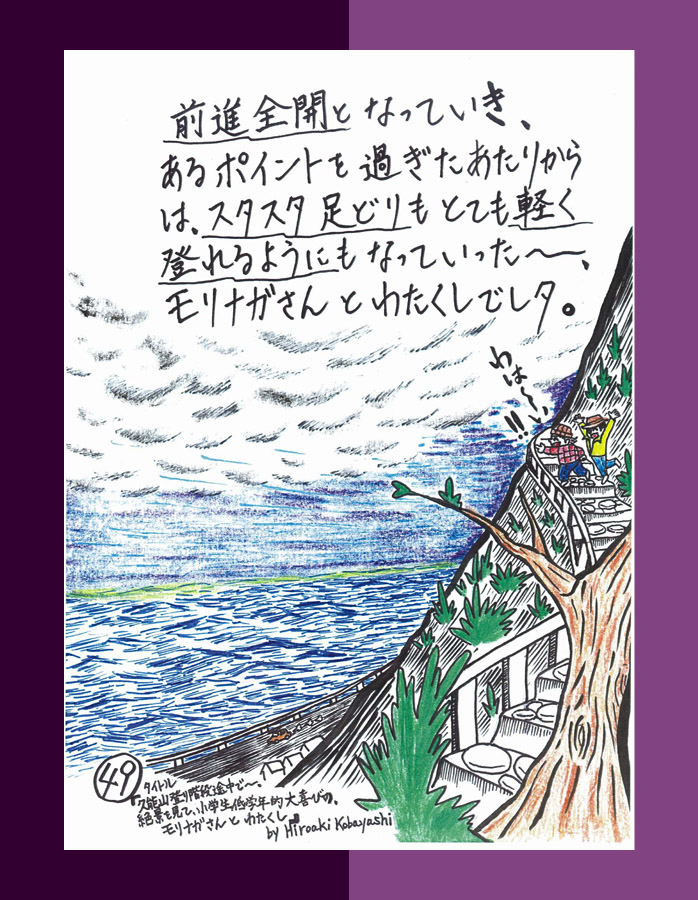 前進全開となっていき、
あるポイントを過ぎたあたりから
は、スタスタ足どりもとても軽く
登れるようにもなっていった〜〜、
モリナガさんとわたくしでしタ。
わは〜〜!!
49
タイトル
久能山登り階段途中で〜。
絶景を見て、小学生低学年的大喜びの、
モリナガさんとわたくし
by Hiroaki Kobayashi